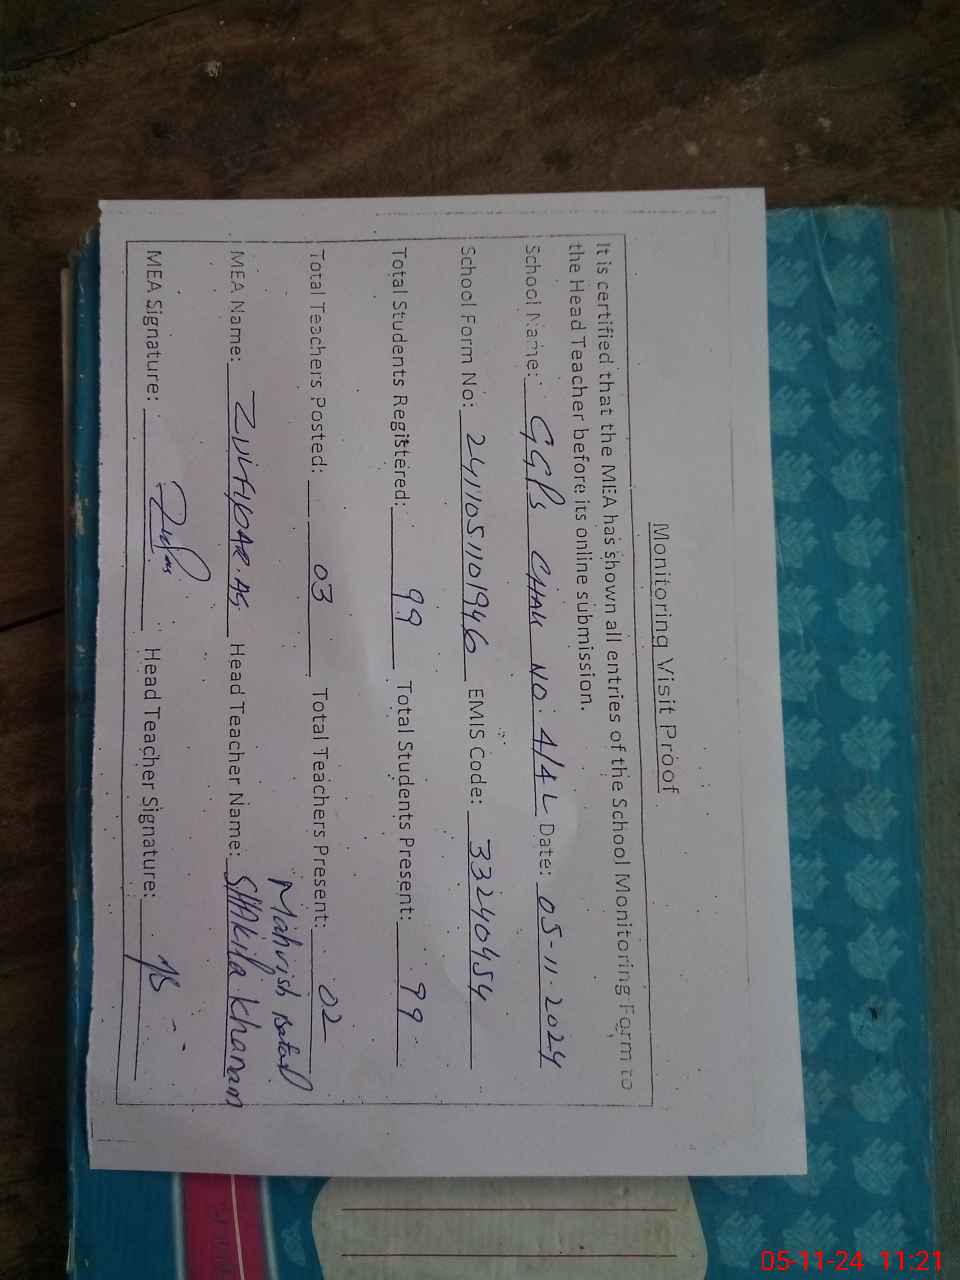 Monitoring Visit Proof
It is certified that the MEA has shown all entries of the School Monitoring Form to
the Head Teacher before its online submission.
School Name: GGPS CHAK NO: 4/4L Date: 05-11-2024
School Form No: 241105110 1946 EMIS Code: 33240454
Total Students Registered: 99 Total Students Present: 99
Total Teachers Posted: 03 Total Teachers Present: 02
Mahvish
MEA Name: ZULFIQAR.AS Head Teacher Name: SHAkila Khanam
MEA Signature: Head Teacher Signature:
05-11-24 11:21